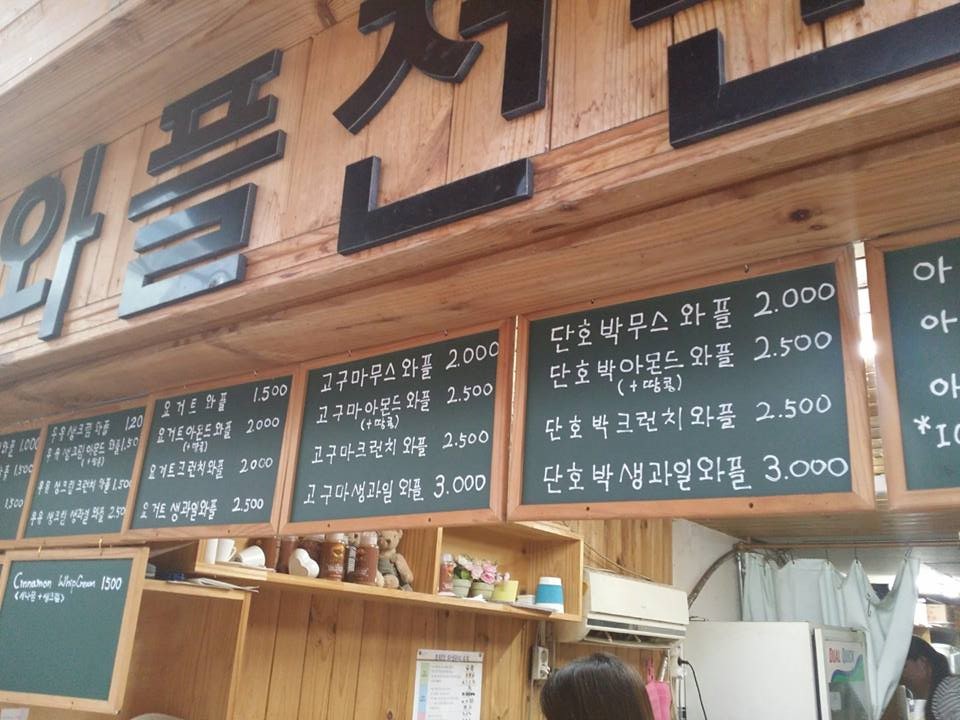 와플전
1.000
1.500
1.500
우유생크림 와플 1.20
우유생크림아몬드 와플 1.50
우유 생크림 크런치 와플 1.500
우유 생크림 생과일 와플 2.50
요거트 와플 1.500
요거트아몬드와플 2000
(+땅콩)
요거트크런치 와플 2000
요거트 생과일와플 2.500
고구마무스와플 2.000
고구마아몬드 와플 2.500
(+땅콩)
고구마크런치 와플 2.500
고구마생과일 와플 3.000
단호박무스 와플 2.000
단호박아몬드 와플 2.500
(+땅콩)
단호박크런치와플 2.500
단호박생과일와플 3.000
아
아
아
Cinnamon WhipCream 1500
DUAL QUICK